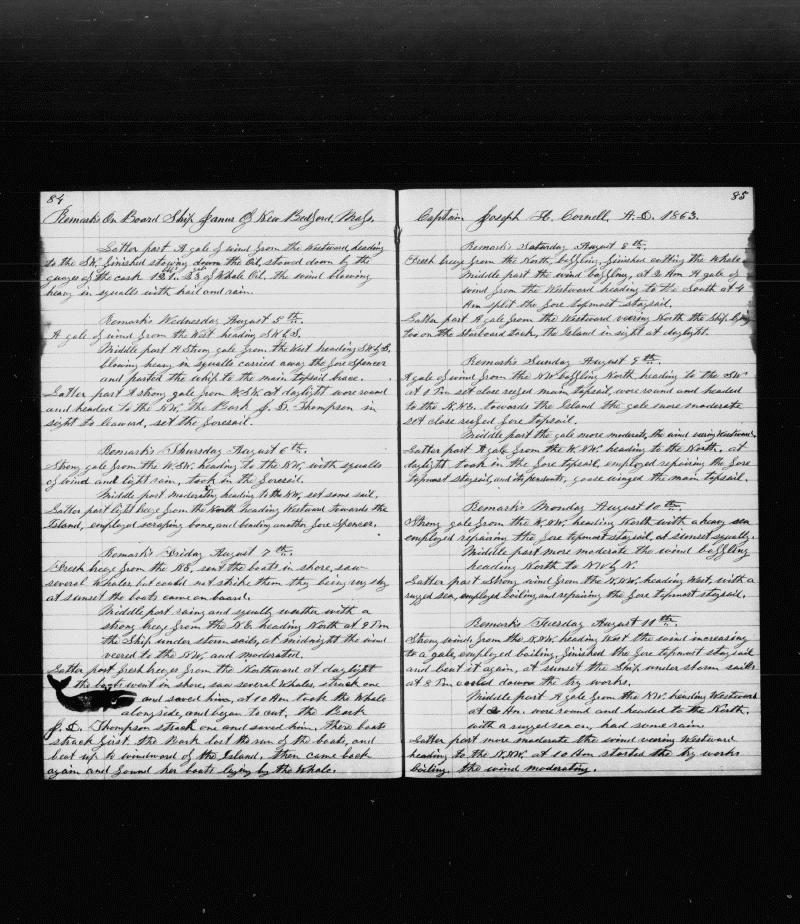 84
Remarks On Board Ship Janus Of New Bedford, Mass.
Latter part A gale of wind from the Westward, heading
to the SW. finished stowing down the Oil, stowed down by the
gauges of the cask of Whale Oil. the wind blowing
heavy in squalls with hail and rain.
Remarks Wednesday August 5th.
A gale of wind from the West heading SW by S.
Middle part A Strong gale from the West heading SW by S.
blowing heavy in squalls carried away the fore Spencer
and parted the whip to the main topsail brace.
Latter part A strong gale from W.S.W. at daylight wore round
and headed to the NW. the Bark J. D. Thompson in
sight to leward, set the foresail.
Remarks Thursday August 6th.
Strong gale from the W.SW. heading to the NW. with squalls
of wind and light rain, took in the foresail.
Middle part moderating heading to the NW, set some sail.
Latter part light breeze from the North heading Westward towards the
Island, employed scraping bone, and bending another fore Spencer.
Remarks Friday August 7th.
Fresh breeze from the NE, sent the boats in shore, saw
several Whales, but could not strike them they being very shy
at sunset the boats came on board.
Middle part rainy and squally weather with a
strong breeze from the N.E. heading North at 9 Pm
the Ship under storm sails, at midnight the wind
veered to the NW. and moderated.
Latter part fresh breezes from the Northward at daylight
the boats went in shore, saw several Whales, struck one
and saved him, at 10 Am took the Whale
alongside, and began to cut, the Bark
J. D. Thompson struck one and saved him. There boats
struck first. the Bark lost the run of the boats, and
beat up to windward of the Island, then came back
again and found her boats laying by the Whale.
85
Captain Joseph H. Cornell, A.D. 1863.
Remarks Saturday August 8th.
Fresh breeze from the North, baffling, finished cutting the Whale
Middle part the wind baffling, at 2 Am A gale of
wind from the Westward heading to the South at 4
Am split the fore topmost staysail.
Latter part A gale from the Westward veering North the Ship lying
too on the Starboard tack, the Island in sight at daylight.
Remarks Sunday August 9th.
A gale of wind from the NW baffling North, heading to the SW
at 1 Pm set close reefed main topsail, wore round and headed
to the N.NE. towards the Island the gale more moderate
set close reefed fore topsail.
Middle part the gale more moderate, the wind veering Westward.
Latter part A gale from the W.NW. heading to the North. at
daylight took in the fore topsail, employed repairing the fore
topmost staysail, goose winged the main topsail.
Remarks Monday August 10th.
Strong gale from the W.NW. heading North with a heavy sea
employed repairing the fore topmost staysail, at sunset squally.
Middle part more moderate the wind baffling
heading North to NW by N.
Latter part strong wind from the N.NW, heading West, with a
rugged sea, employed boiling, and repairing the fore topmost staysail.
Remarks Tuesday August 11th.
Strong winds from the N.NW. heading West the wind increasing
to a gale, employed boiling, finished the fore topmost staysail
and bent it again, at sunset the Ship under storm sails
at 8 Pm cooled down the try works.
Middle part A gale from the NW. heading Westward
at 2 Am. wore round and headed to the North.
with a rugged sea on, had some rain
Latter part more moderate the wind veering Westward
heading to the N.NW. at 10 Am started the try works
boiling, the wind moderating.